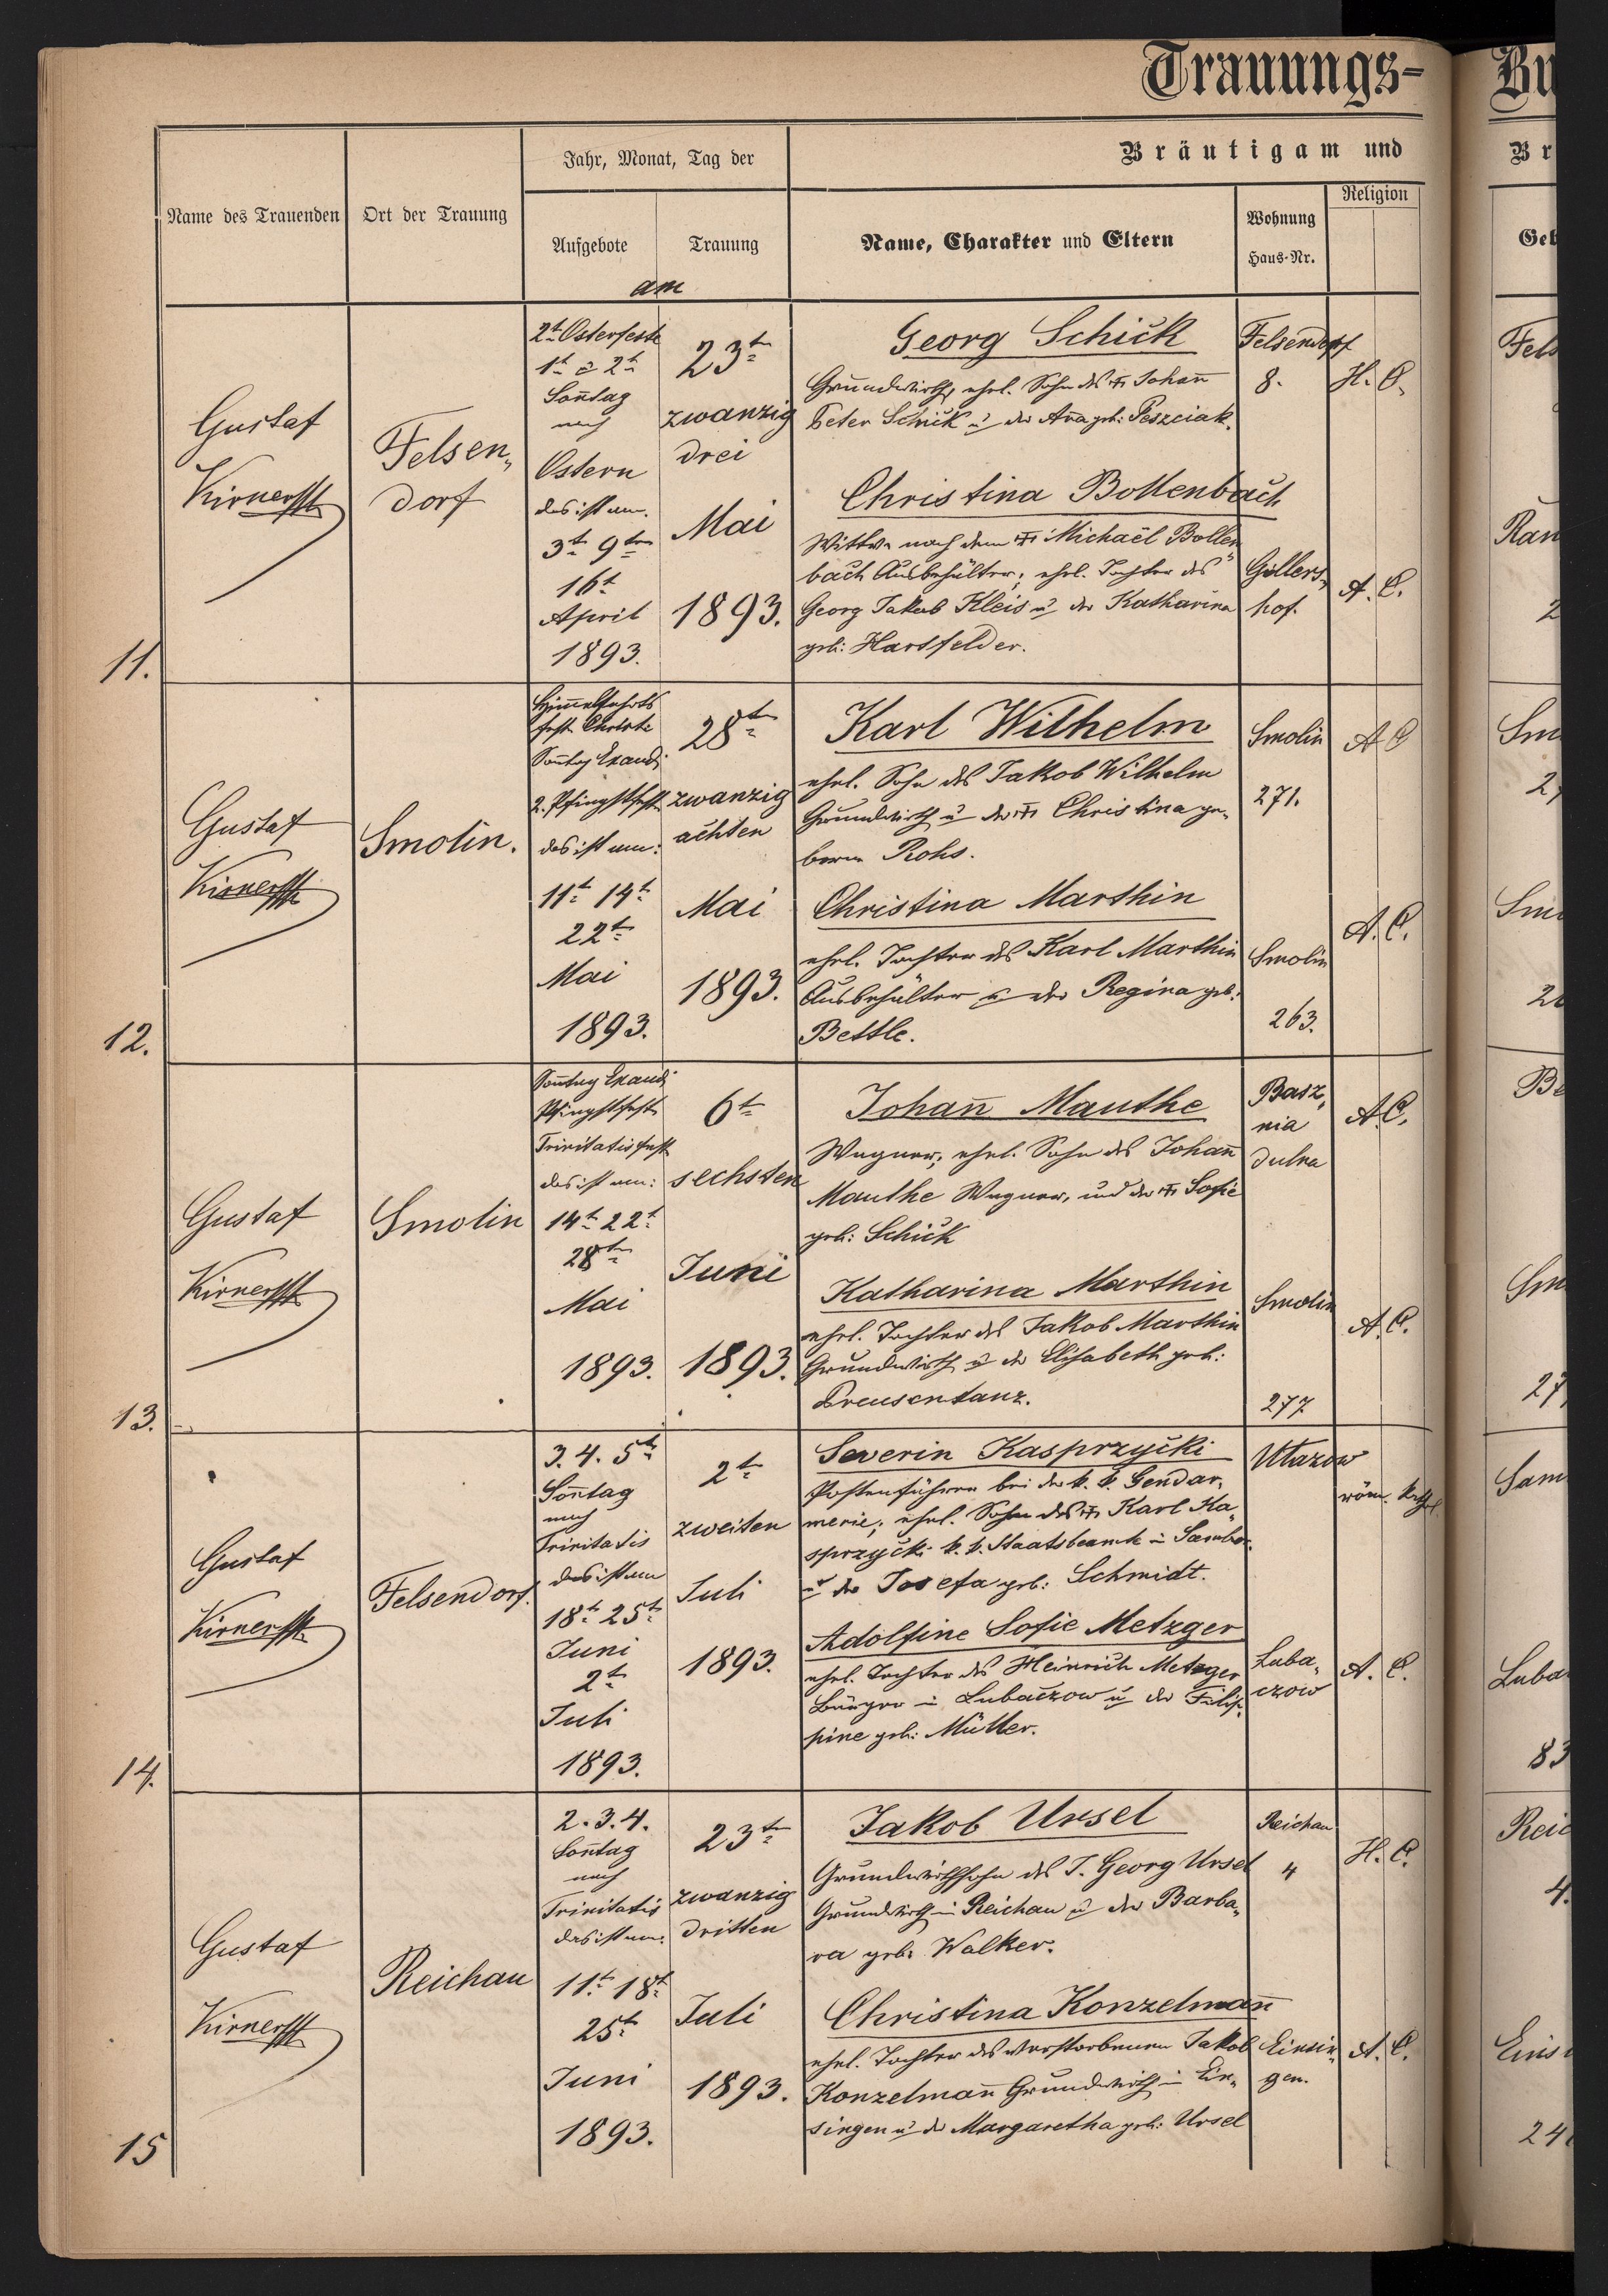 Trauungs-
Bu
Name des Trauenden
Ort der Trauung
Jahr, Monat, Tag der
Aufgebote
Trauung
am
Bräutigam und
Name, Charakter und Eltern
Wohnung
Haus-Nr.
Religion
Br
Geb
11.
Gustaf
Felsen„
dorf
2t Osterfeste
1t & 2t
Sonntag
nach
Ostern
das ist am.
3t 9ten
16t
April
1893.
23t
zwanzig
drei
Mai
1893.
Georg Schick
Grundwirth, ehel. Sohn des Johann
Peter Schick u der Anna geb: Peszciak.
Felsendorf
8.
H. C.
Christina Bollenbach
Wittwe nach dem Michaël Bollen„
bach Ausbehälter; ehel. Tochter des
Georg Jakob Kleis u der Katharina
geb: Harsfelder.
Gillers„
hof.
A. C.
Fels
Ran
2
12.
Gustaf
Smolin.
Himmelfahrts
fest Christi
Sonntag Exaudi
2. Pfingstfest
das ist am:
11t 14t
22t
Mai
1893.
28t
zwanzig
achten
Mai
1893.
Karl Wilhelm
ehel. Sohn des Jakob Wilhelm
Grundwirth u der Christina ge„
borne Rohs.
Smolin
271.
A C
Christina Marthin
ehel. Tochter des Karl Marthin
Ausbehälter u der Regina geb:
Bettle.
Smolin
263.
A. C.
Sm
27
Smo
26
13.
Gustaf
Smolin
Sonntag Exaudi
Pfingstfest
Trinitatisfest
das ist am:
14t 22t
28t
Mai
1893.
6t
sechsten
Juni
1893.
Johann Mauthe
Wagner; ehel. Sohn des Johann
Mauthe Wagner, und der Sofie
geb: Schick
Basz„
nia
dulna
A.C.
Katharina Marthin
ehel. Tochter des Jakob Marthin
Grundwirth u der Elisabeth geb:
Preusentanz.
Smolin
277
A. C.
Ba
Sm
27
14.
Gustaf
Felsendorf.
3. 4. 5t
Sonntag
nach
Trinitatis
das ist am
18t 25t
Juni
2t
Juli
1893.
2t
zweiten
Juli
1893.
Severin Kasprzycki
Postenführer bei der k. k. Gendar„
merie; ehel. Sohn des Karl Ka„
sprzycki k. k. Staatsbeamte in Sambor
u der Josefa geb: Schmidt.
Utazow
röm. kath.
Adolfine Sofie Metzger
ehel. Tochter des Heinrich Metzger
Bürger in Lubaczow u der Filip„
pine geb: Müller.
Luba„
czow
A. C.
Sam
Luba
83
15
Gustaf
Reichau
2. 3. 4.
Sonntag
nach
Trinitatis
das ist am:
11t 18t
25t
Juni
1893.
23t
zwanzig
dritten
Juli
1893.
Jakob Ursel
Grundwirthsohn des J. Georg Ursel
Grundwirth in Reichau u der Barba„
ra geb: Walker.
Reichau
4
H. C.
Christina Konzelmann
ehel. Tochter des verstorbenen Jakob
Konzelmann Grundwirth in Ein„
singen u der Margaretha geb: Ursel
Einsin„
gen.
A. C.
Reic
4.
Eins
24